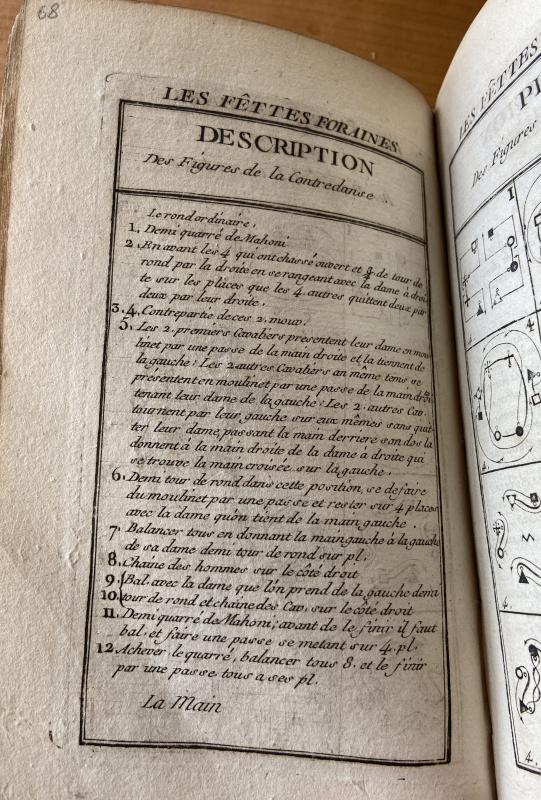 68
LES FÊTTES FORAINES.
DESCRIPTION
Des Figures de la Contredanse.
Le rond ordinaire,
1. Demi quarré de Mahoni
2. En avant les 4 qui ont chassé ouvert et 3/4 de tour de
rond par la droite en se rangeant avec la dame à droi-
te sur les places que les 4. autres quittent deux par
deux par leur droite.
3.4. Contrepartie de ces 2. mouv.
5. Les 2. premiers Cavaliers presentent leur dame en mou-
linet par une passe de la main droite et la tiennent de
la gauche: Les 2. autres Cavaliers an même tems se
présentent en moulinet par une passe de la main droite
tenant leur dame de la gauche: Les 2. autres Cav.
tournent par leur gauche sur eux mêmes sans quit-
ter leur dame, passant la main derriere son dos la
donnent à la main droite de la dame à droite qui
se trouve la main croisée sur la gauche.
6. Demi tour de rond dans cette position, se defaire
du moulinet par une passe et rester sur 4 places
avec la dame qu'on tient de la main gauche.
7. Balancer tous en donnant la main gauche à la gauche
de sa dame demi tour de rond sur pl.
8. Chaine des hommes sur le côté droit
9. Bal. avec la dame que l'on prend de la gauche demi
10. tour de rond et chaine des Cav. sur le côté droit
11. Demi quarré de Mahoni; avant de le finir il faut
bal. et faire une passe se metant sur 4. pl.
12 Achever le quarré, balancer tous 8. et le finir
par une passe tous a ses pl.
La Main
LES FÊTTES
Des Figures
1
4
4.